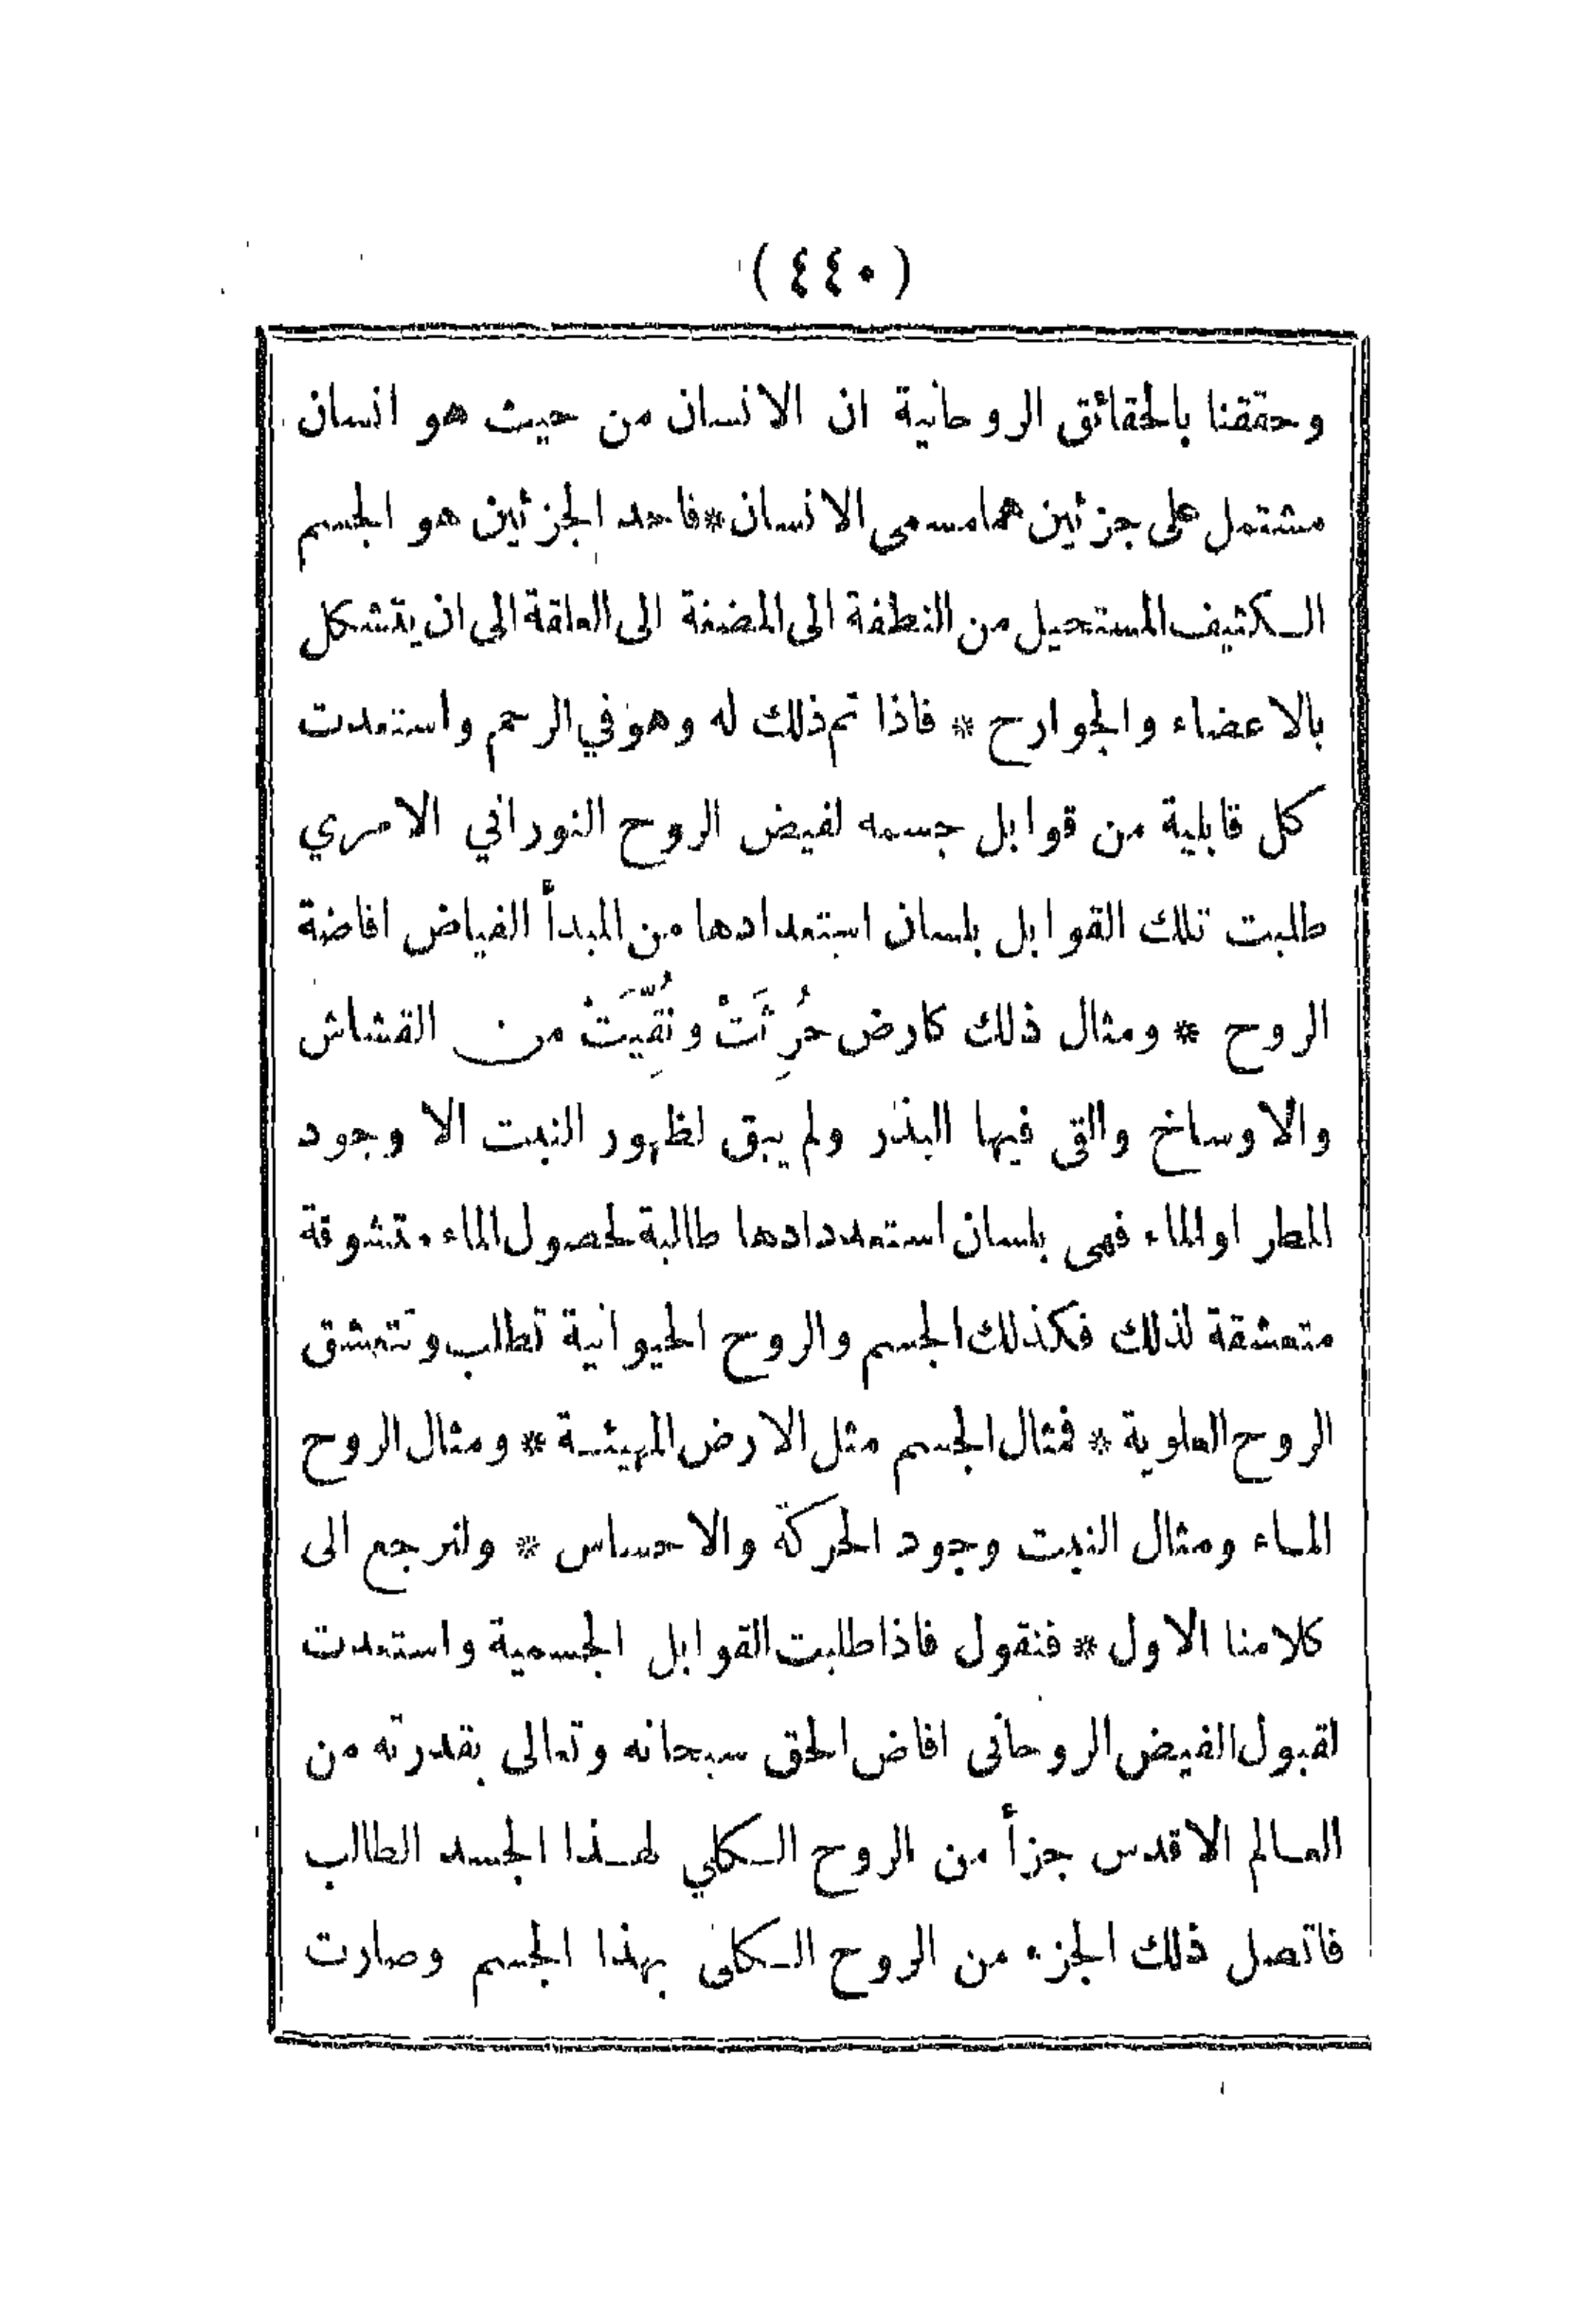 (٤٤٠)
وحققنا بالحقائق الروحانية ان الانسان من حيث هو انسان
مشتمل على جزئين هما مسمى الانسان * فاحد الجزئين هو الجسم
الكثيف المستحيل من النطفة الى المضغة الى العلقة الى ان يتشكل
بالاعضاء والجوارح * فاذا تم ذلك له وهو في الرحم واستعدت
كل قابلية من قوابل جسمه لفيض الروح النوراني الامري
طلبت تلك القوابل بلسان استعدادها من المبدأ الفياض افاضة
الروح * ومثال ذلك كارض حُرِثَتْ ونُقِّيَتْ من القشاش
والاوساخ والقى فيها البذر ولم يبق لظهور النبت الا وجود
المطر او الماء فهى بلسان استعدادها طالبة لحصول الماء متشوقة
متعشقة لذلك فكذلك الجسم والروح الحيوانية تطلب وتتعشق
الروح العلوية * فمثال الجسم مثل الارض المهيئة * ومثال الروح
الماء ومثال النبت وجود الحركة والاحساس * ولنرجع الى
كلامنا الاول * فنقول فاذا طلبت القوابل الجسمية واستعدت
لقبول الفيض الروحانى افاض الحق سبحانه وتعالى بقدرته من
العالم الاقدس جزأ من الروح الكلي لهذا الجسد الطالب
فاتصل ذلك الجزء من الروح الكلى بهذا الجسم وصارت